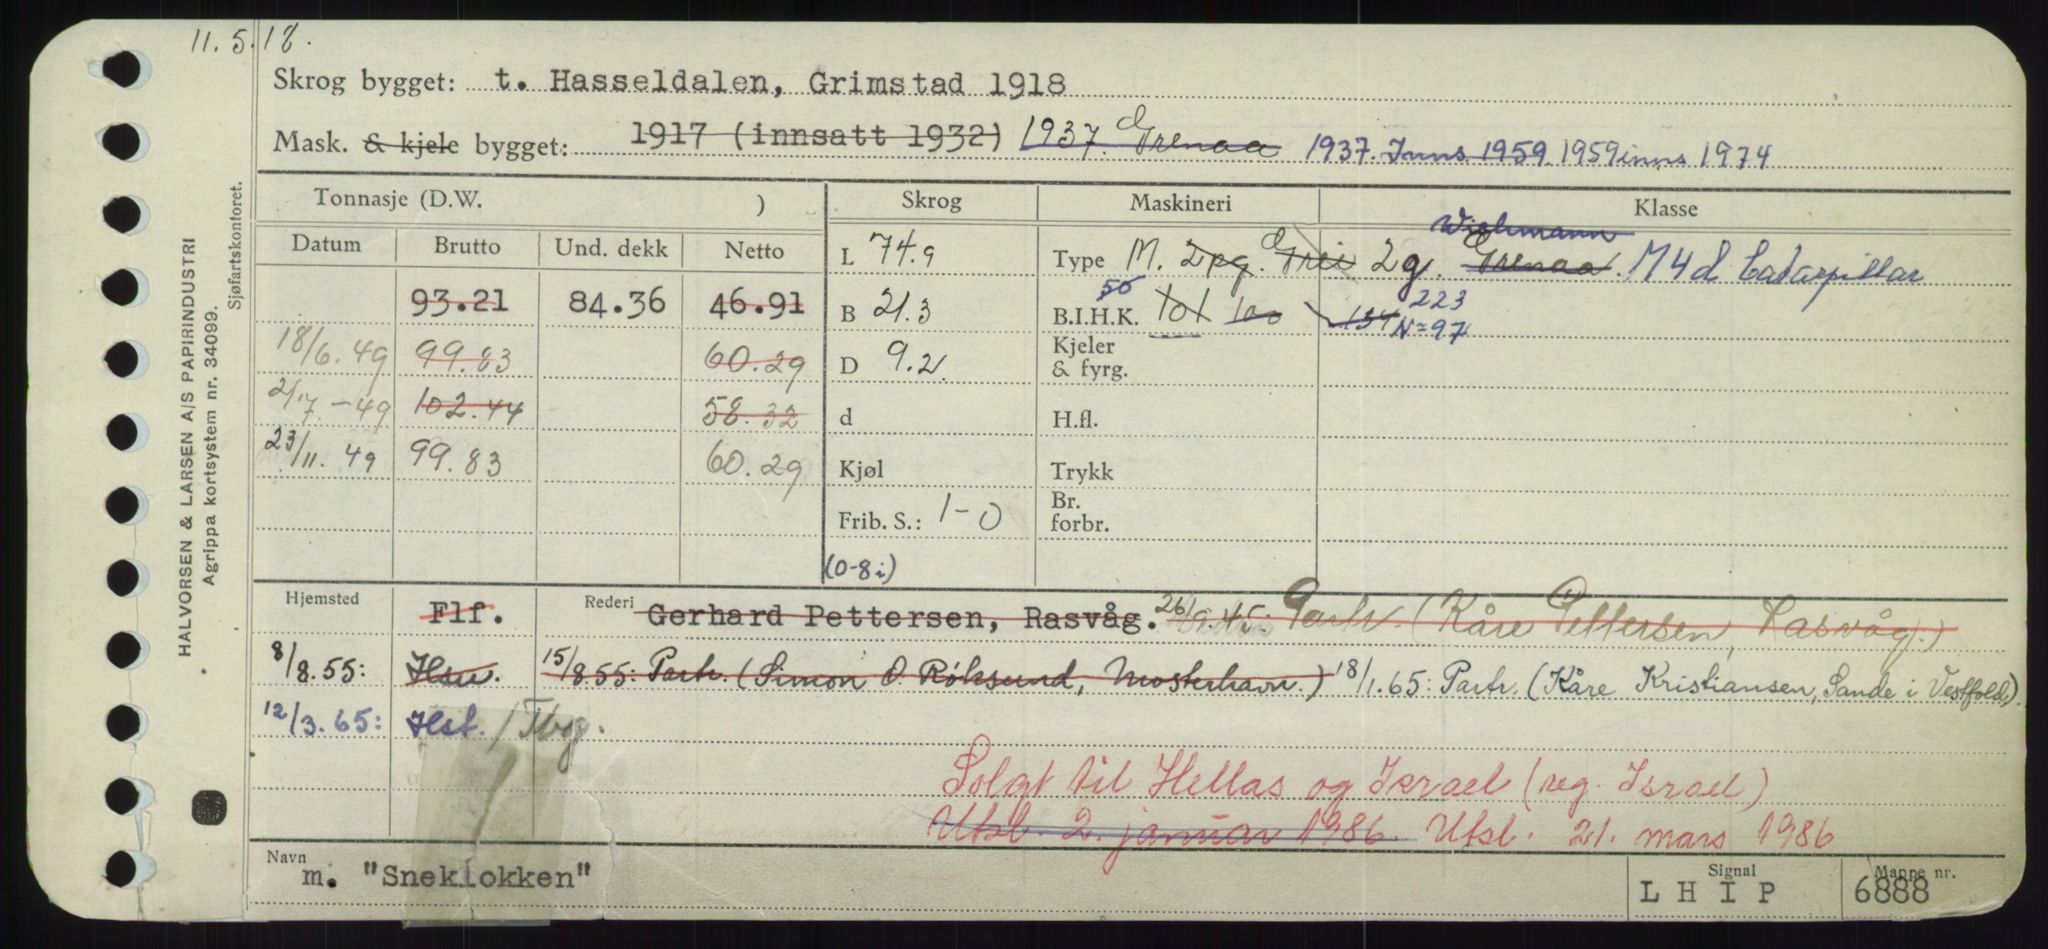 11.5.18.
Skrog bygget: t. Hasseldalen, Grimstad 1918
Mask. & kjele bygget: 1917 (innsatt 1932) 1937. Grenaa 1937. Inns 1959. 1959 inns 1974
Tonnasje (D.W. ) Skrog Maskineri Klasse
Datum Brutto Und. dekk Netto
L 74.9 Type M. 2pg. Grei 2g. Grenaa. Wichmann M4d Catarpillar
93.21 84.36 46.91 B 21.3 B.I.H.K. 56 101 100 134 223 N=97
18/6.49 99.83 60.29 D 9.2 Kjeler & fyrg.
2/7.-49 102.44 58.32 d H.fl.
23/11.49 99.83 60.29 Kjøl Trykk
Frib. S.: 1-0 Br. forbr.
(0-8i)
Hjemsted Flf. Rederi Gerhard Pettersen, Rasvåg. 26/9.45: Partr. (Kåre Pettersen, Rasvåg.)
8/8.55: Hsu. 15/8 55: Partr. (Simon O. Røksund, Mosterhavn.) 18/1.65: Partr. (Kåre Kristiansen, Sande i Vestfold).
12/3.65: Hst. / Tbg.
Solgt til Hellas og Israel (reg. Israel)
Utsl. 2. januar 1986. Utsl. 21. mars 1986
Navn m. "Sneklokken" Signal LHIP Mappe nr. 6888
HALVORSEN & LARSEN A/S PAPIRINDUSTRI
Agrippa kortsystem nr. 34099.
Sjøfartskontoret.